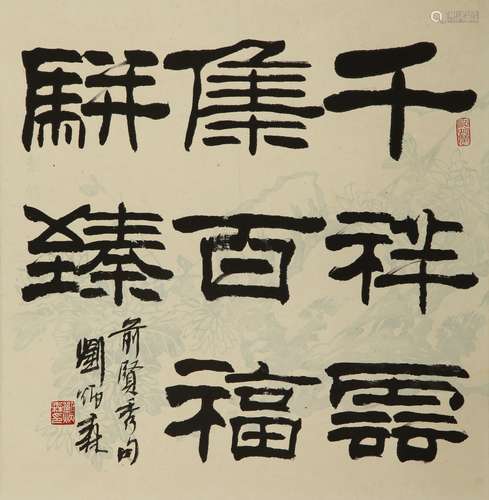 千祥雲
集百福
駢臻
前賢秀句
劉炳森